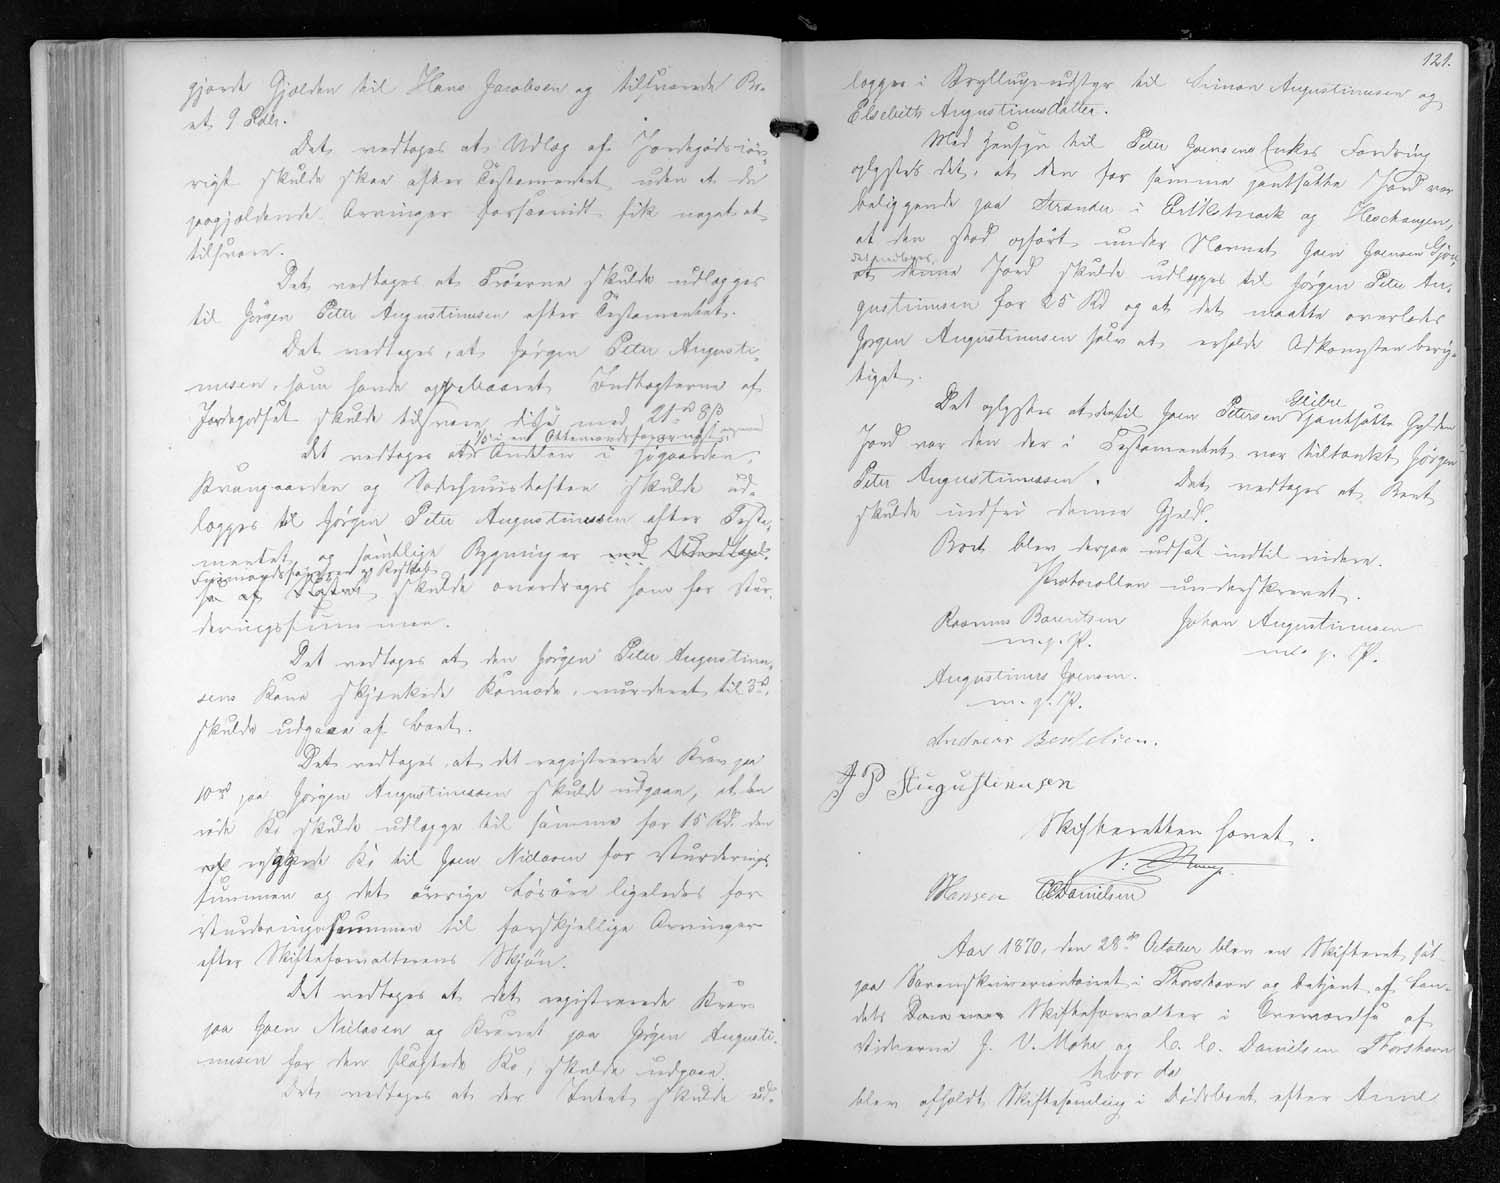 gjorde Gjælden til Hans Jacobsen og tilsvarede Bo-
et 9 Rdlr.
Det vedtoges at Udlæg af Jordegods iøv-
rigt skulde skee efter Testamentet uden at de
paagjældende Arvinger forsaavidt fik noget at
tilsvare.
Det vedtoges at Trøerne skulde udlægges
til Jørgen Peter Augustinussen efter Testamentet.
Det vedtoges, at Jørgen Peter Augusti-
nussen, som havde oppebaaret Indtægterne af
Jordegodset skulde tilsvare disse med 21 rd 8 ß
Det vedtoges at 1/5 i en Ottemandsfarerbaad
Andelen i Høgaarden,
Kvangaarden og skulde ud-
lægges til Jørgen Peter Augustinussen efter Testa-
mentet og samtlige Bygninger med
Redskab
skulde overdrages ham for Vur-
deringssummen.
Det vedtoges at den Jørgen Peter Augustinus-
sens Kone skjænkede Komode, vurderet til 3 rd,
skulde udgaae af Boet.
Det vedtoges at det registrerede Krav paa
10 rd paa Jørgen Augustinussen skulde udgaae, at den
røde Ko skulde udlægges til samme for 15 Rd. den
Ko til Joen Nielssen for Vurderings-
summen og det øvrige Løsøre ligeledes for
Vurderingssummen til forskjellige Arvinger
efter Skifteforvalterens Skjøn.
Det vedtoges at det registrerede Krav
paa Joen Nielssen og Kravet paa Jørgen Augusti-
nussen for den slagtede Ko, skulde udgaae.
Det vedtoges at der Intet skulde ud-
121.
lægges i Bryllupsudstyr til Simon Augustinussen og
Elsebeth Augustinusdatter.
Med Hensyn til Peter Joensens Enkes Fordring
oplystes det, at den for samme pantsatte Jord var
beliggende paa Strender i og
at den stod opført under Navnet Joen Joensen Gjøv,
det vedtoges,
at denne Jord skulde udlægges til Jørgen Peter Au-
gustinussen for 25 Rd og at det maatte overlades
Jørgen Augustinussen selv at erholde Adkomsten berig-
tiget.
Det oplystes at den til Joen Petersen pantsatte Gylden
Jord var den der i Testamentet var tiltænkt Jørgen
Peter Augustinussen. Det vedtoges at Boet
skulde indfri denne Gjeld.
Boet blev derpaa udsat indtil videre.
Protocollen underskrevet.
Rasmus Barentsen Johan Augustinussen
m. f. P. m. f. P.
Augustinus Joensen.
m. f. P.
Andreas Berthelsen.
J P Augustinusen
Skifteretten hævet.
Hansen CCDanielsen
Aar 1870, den 28de October blev en Skifteret sat
paa Sorenskrivercontoiret i Thorshavn og betjent af Lan-
dets Skifteforvalter i Overværelse af
Vidnerne J. V. Mohr og C. C. Danielsen Thorshavn
hvor da
blev afholdt Skiftesamling i Dødsboet efter Anne